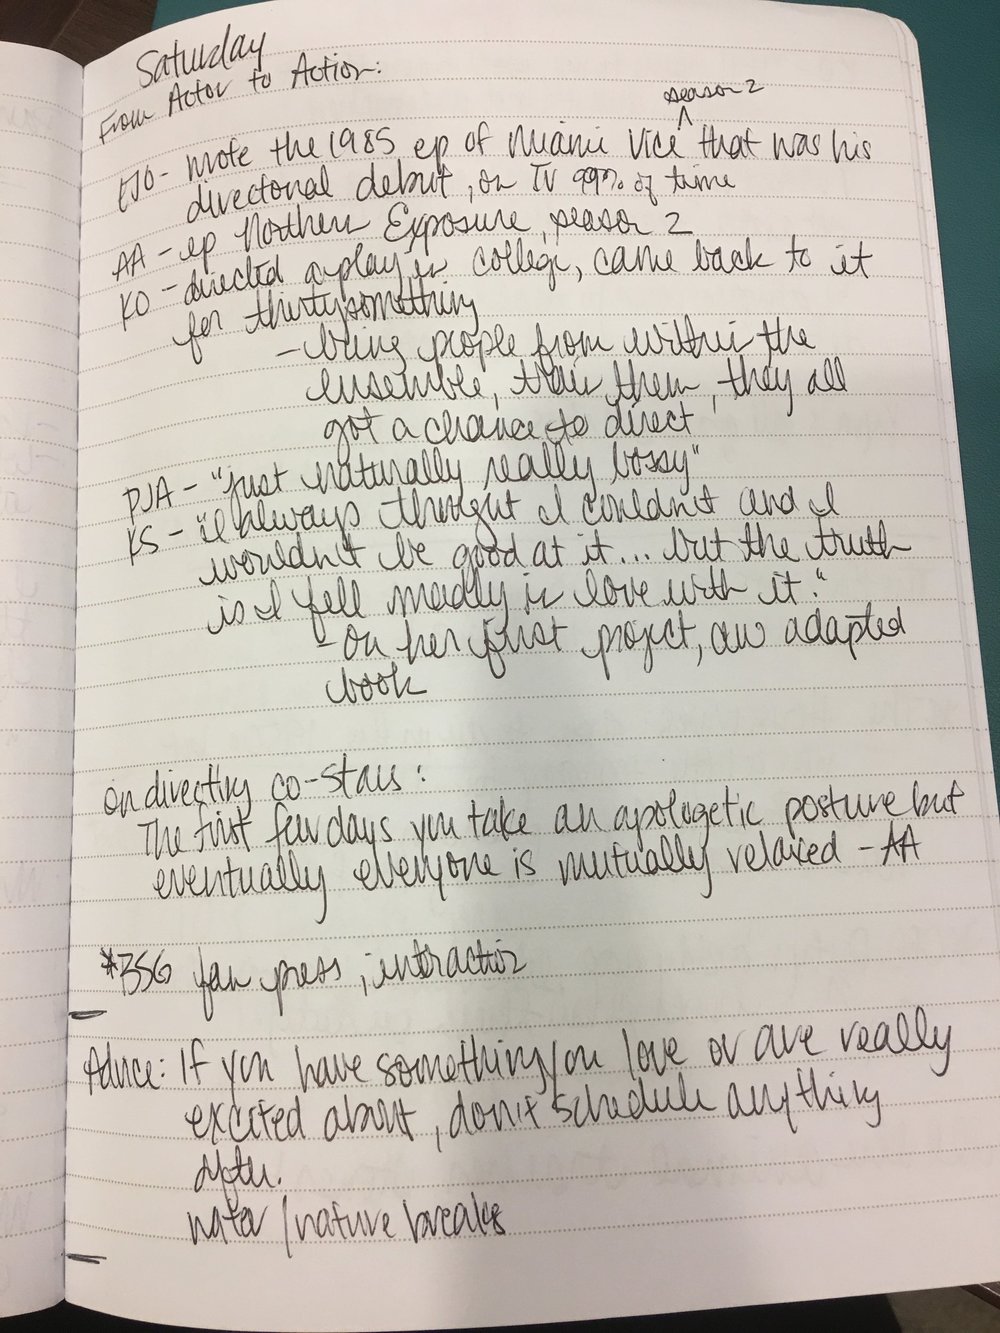 Saturday
From Actor to Action:
season 2
EJO - wrote the 1985 ep of Miami Vice ^ that was his
directorial debut, on TV 99% of time
AA - ep Northern Exposure, season 2
KO - directed a play in college, came back to it
for thirtysomething
- bring people from within the
ensemble, train them, they all
got a chance to direct
DJA - "just naturally really bossy"
KS - "I always thought I couldn't and I
wouldn't be good at it... but the truth
is I fell madly in love with it."
- on her first project, an adapted
book
On directing co-stars:
The first few days you take an apologetic posture but
eventually everyone is mutually relaxed - AA
*BSG fan press, interaction
Advice: If you have something you love or are really
excited about, don't schedule anything
after.
water / nature breaks